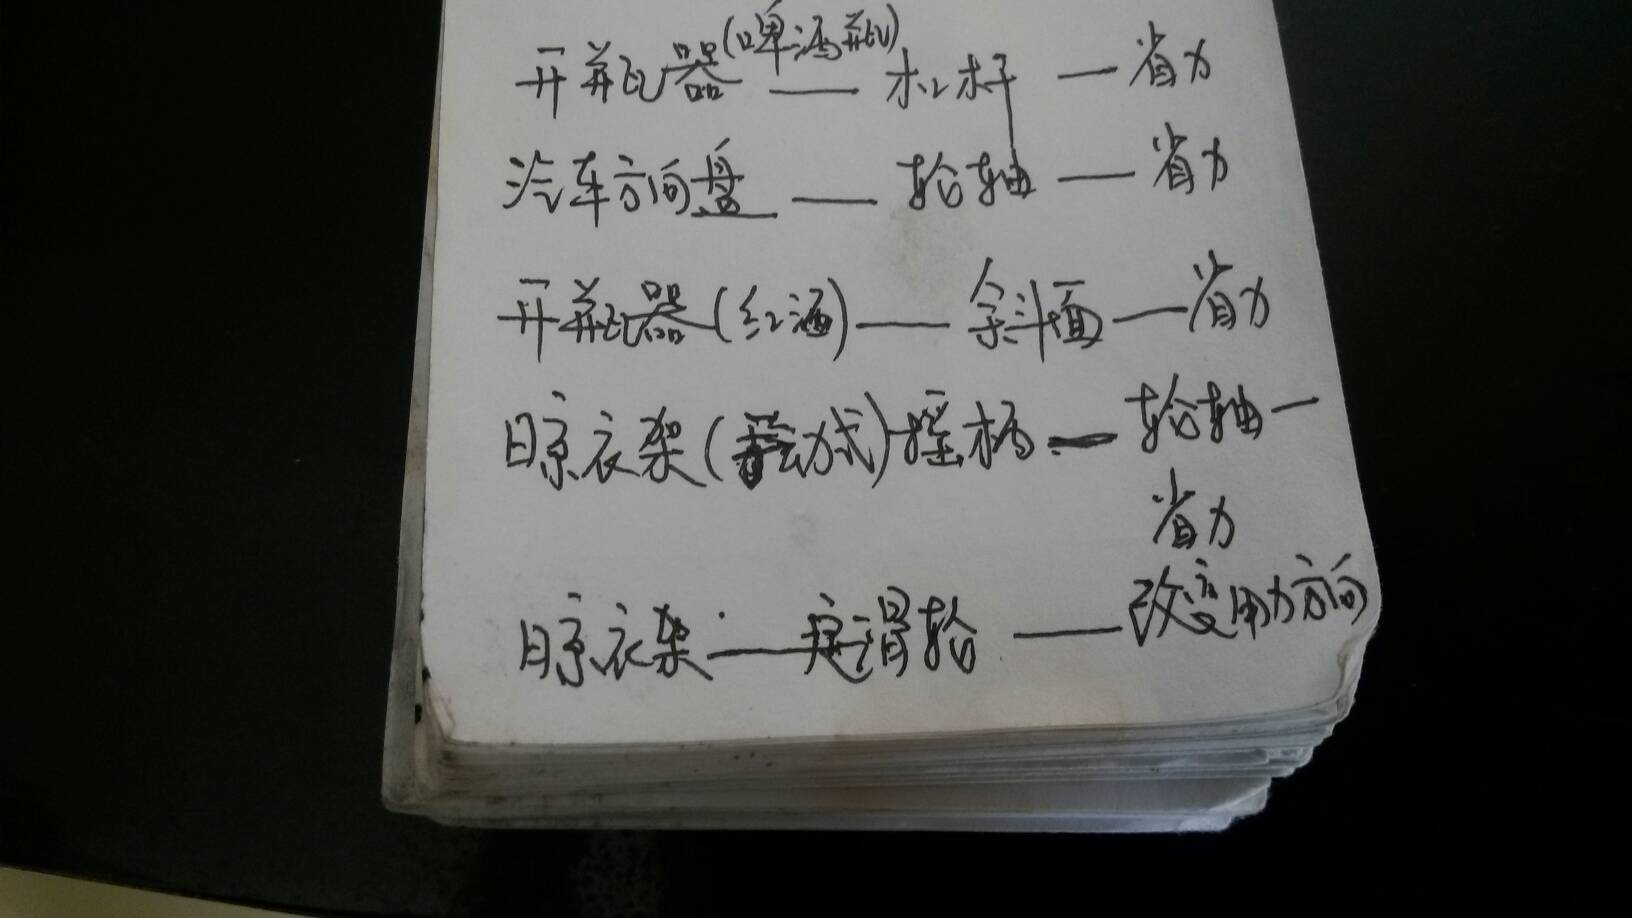 开瓶器(啤酒瓶)——杠杆—省力
汽车方向盘——轮轴—省力
开瓶器(红酒)——斜面—省力
晾衣架(手动式)摇柄—轮轴—
省力
晾衣架——定滑轮——改变用力方向